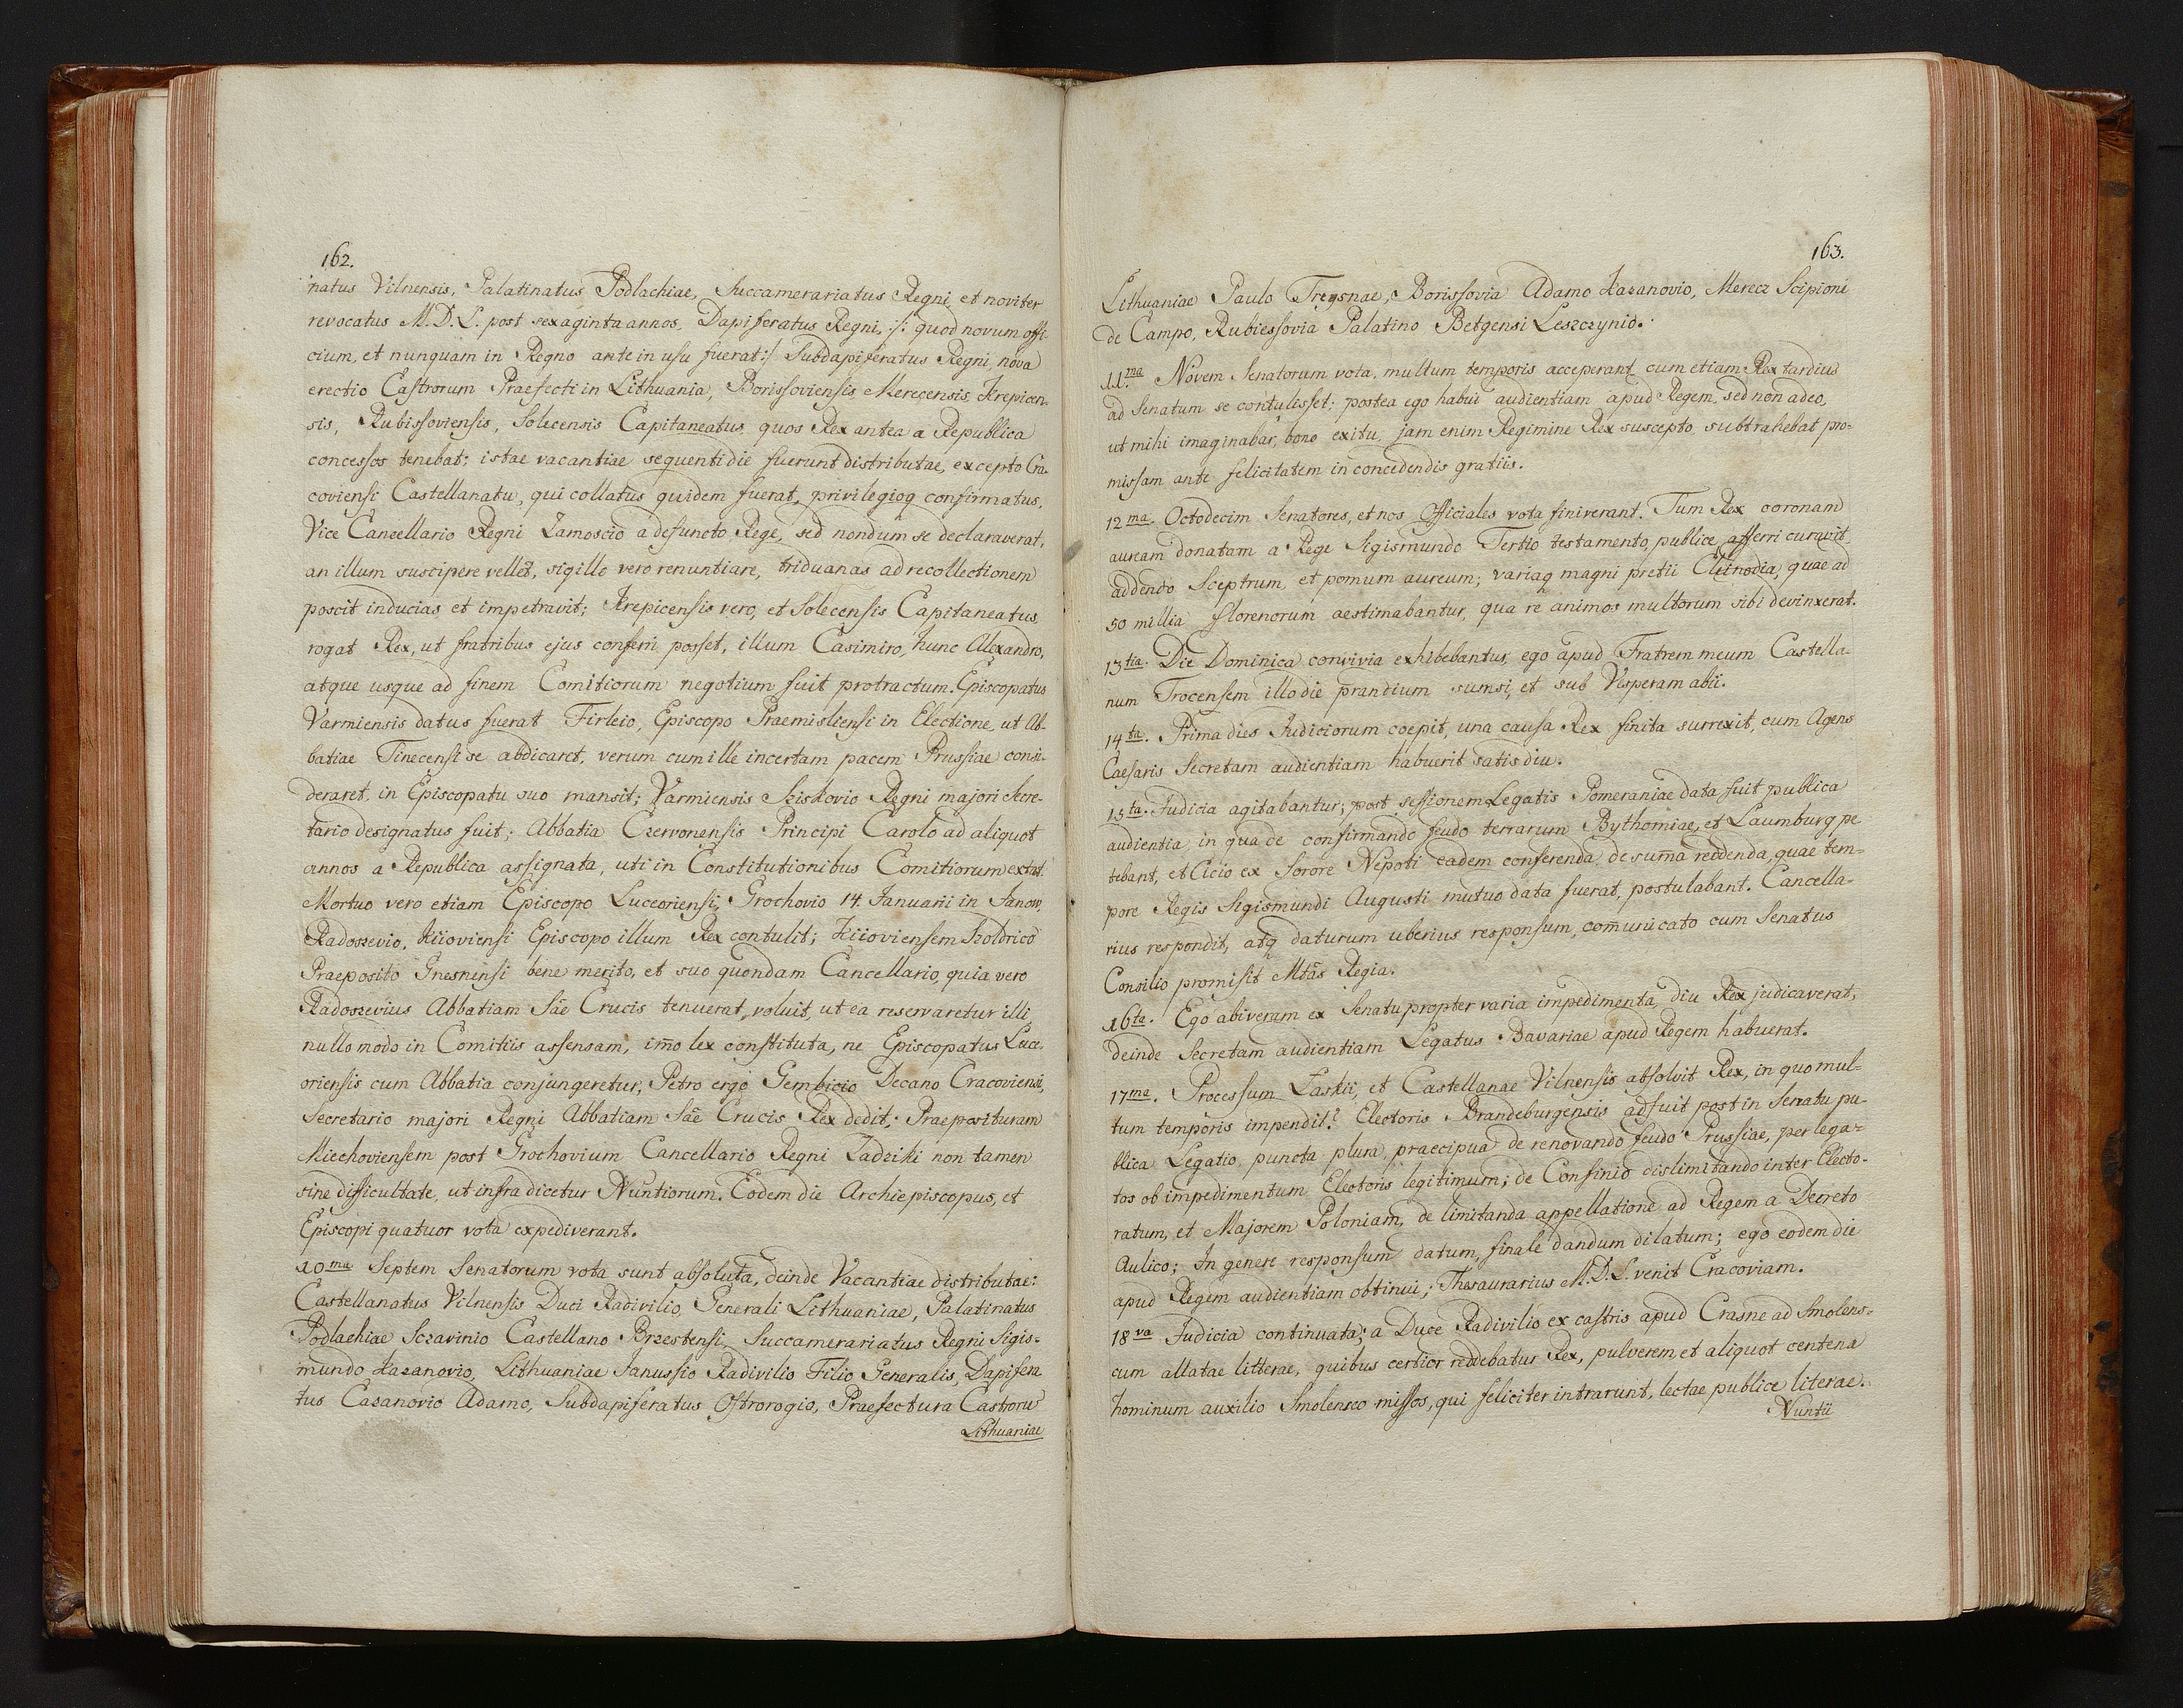 162.
natus Vilnensis, Palatinatus Podlachiae, Succamerariatus Regni, et noviter
revocatus M.D.L. post sexaginta annos, Dapiferatus Regni, :/: quod novum offi-
cium, et nunquam in Regno ante in usu fuerat :/ Subdapiferatus Regni, nova
erectio Castrorum Praefecti in Lithuania, Borissoviensis, Merecensis, Krepicen-
sis, Rubissoviensis, Solecensis Capitaneatus, quos Rex antea a Republica
concessos tenebat; istae vacantiae sequenti die fuerunt distributae, excepto Cra-
coviensi Castellanatu, qui collatus quidem fuerat, privilegioq confirmatus,
Vice Cancellario Regni Zamoscio a defuncto Rege, sed nondum se declaraverat,
an illum suscipere vellet, sigillo vero renuntiare, triduanas ad recollectionem
poscit inducias et impetravit; Krepicensis vero, et Solecensis Capitaneatus
rogat Rex, ut fratribus ejus conferri posset, illum Casimiro, hunc Alexandro,
atque usque ad finem Comitiorum negotium fuit protractum. Episcopatus
Varmiensis datus fuerat Firleio, Episcopo Praemisliensi in Electione, ut Ab-
batiae Tinecensi se abdicaret, verum cum ille incertam pacem Prussiae consi-
deraret, in Episcopatu suo mansit; Varmiensis Sziskovio Regni majori Secre-
tario designatus fuit; Abbatia Czervonensis Principi Carolo ad aliquot
annos a Republica assignata, uti in Constitutionibus Comitiorum extat.
Mortuo vero etiam Episcopo Luceoriensi, Grochovio 14. Januarii in Janow,
Radoszevio, Kiioviensi Episcopo illum Rex contulit; Kiioviensem Szoldrico
Praeposito Gnesnensi bene merito, et suo quondam Cancellario, quia vero
Radoszevius Abbatiam Sae Crucis tenuerat, voluit, ut ea reservaretur illi
nullo modo in Comitiis assensam, imo lex constituta, ne Episcopatus Luce-
oriensis cum Abbatia conjungeretur, Petro ergo Gembicio Decano Cracoviensi,
Secretario majori Regni Abbatiam Sae Crucis Rex dedit; Praeposituram
Miechoviensem post Grochovium Cancellario Regni Zadziki non tamen
sine difficultate, ut infra dicetur Nuntiorum. Eodem die Archiepiscopus, et
Episcopi quatuor vota expediverant.
10ma Septem Senatorum vota sunt absoluta, deinde Vacantiae distributae:
Castellanatus Vilnensis Duci Radivilio, Generali Lithuaniae, Palatinatus
Podlachiae Sczavinio Castellano Brzestensi, Succamerariatus Regni Sigis-
mundo Kazanovio, Lithuaniae Janussio Radivilio Filio Generalis, Dapifera
tus Cazanovio Adamo, Subdapiferatus Ostrorogio, Praefectura Castroru
Lithuaniae
163.
Lithuaniae Paulo Tryznae, Borissovia Adamo Kazanovio, Merecz Scipioni
de Campo, Rubiessovia Palatino Betgensi Leszczynio.
11.ma Novem Senatorum vota, multum temporis acceperant, cum etiam Rex tardius
ad Senatum se contulisset; postea ego habui audientiam apud Regem, sed non adeo,
ut mihi imaginabar, bono exitu, jam enim Regimine Rex suscepto, subtrahebat pro-
missam ante felicitatem in concedendis gratiis.
12ma. Octodecim Senatores, et nos Officiales vota finiverant. Tum Rex coronam
auream donatam a Rege Sigismundo Tertio testamento, publice afferri curavit,
addendo Sceptrum, et pomum aureum; variaq magni pretii Cleinodia, quae ad
50 millia florenorum aestimabantur, qua re animos multorum sibi devinxerat.
13tia. Die Dominica convivia exhibebantur, ego apud Fratrem meum Castella-
num Trocensem illo die prandium sumsi, et sub Vesperam abii.
14ta. Prima dies Judiciorum coepit, una causa Rex finita surrexit, cum Agens
Caesaris Secretam audientiam habuerit satis diu.
15ta. Judicia agitabantur; post sessionem Legatis Pomeraniae data fuit publica
audientia, in qua de confirmando feudo terrarum Bythomiae, et Laumburg pe
tebant, et Cicio ex Sorore Nepoti eadem conferenda, de suma reddenda, quae tem-
pore Regis Sigismundi Augusti mutuo data fuerat, postulabant. Cancella-
rius respondit, atq daturum uberius responsum, comunicato cum Senatus
Consilio promisit Mtas Regia.
16ta. Ego abiveram ex Senatu propter varia impedimenta, diu Rex judicaverat,
deinde Secretam audientiam Legatus Bavariae apud Regem habuerat.
17ma. Processum Laskii, et Castellanae Vilnensis absolvit Rex, in quo mul-
tum temporis impendit: Electoris Brandeburgensis adfuit post in Senatu pu-
blica Legatio, puncta plura, praecipua de renovando feudo Prussiae, per lega-
tos ob impedimentum Electoris legitimum; de Confinio dislimitando inter Electo-
ratum, et Majorem Poloniam, de limitanda appellatione ad Regem a Decreto
Aulico; In genere responsum datum, finale dandum dilatum; ego eodem die
apud Regem audientiam obtinui; Thesaurarius M.D.L. venit Cracoviam.
18va Judicia continuata; a Duce Radivilio ex castris apud Crasne ad Smolens-
cum allatae litterae, quibus certior reddebatur Rex, pulverem et aliquot centena
hominum auxilio Smolensco missos, qui feliciter intrarunt, lectae publice literae.
Nuntii